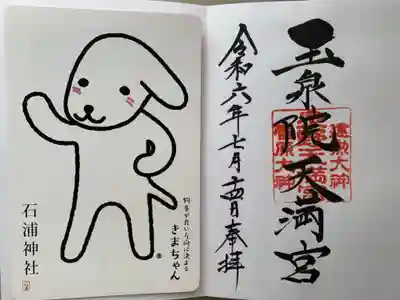 玉泉院天満宮
令和六年七月十四日奉拝
物事が良い方向に決まる
きまちゃん
®
石浦神社